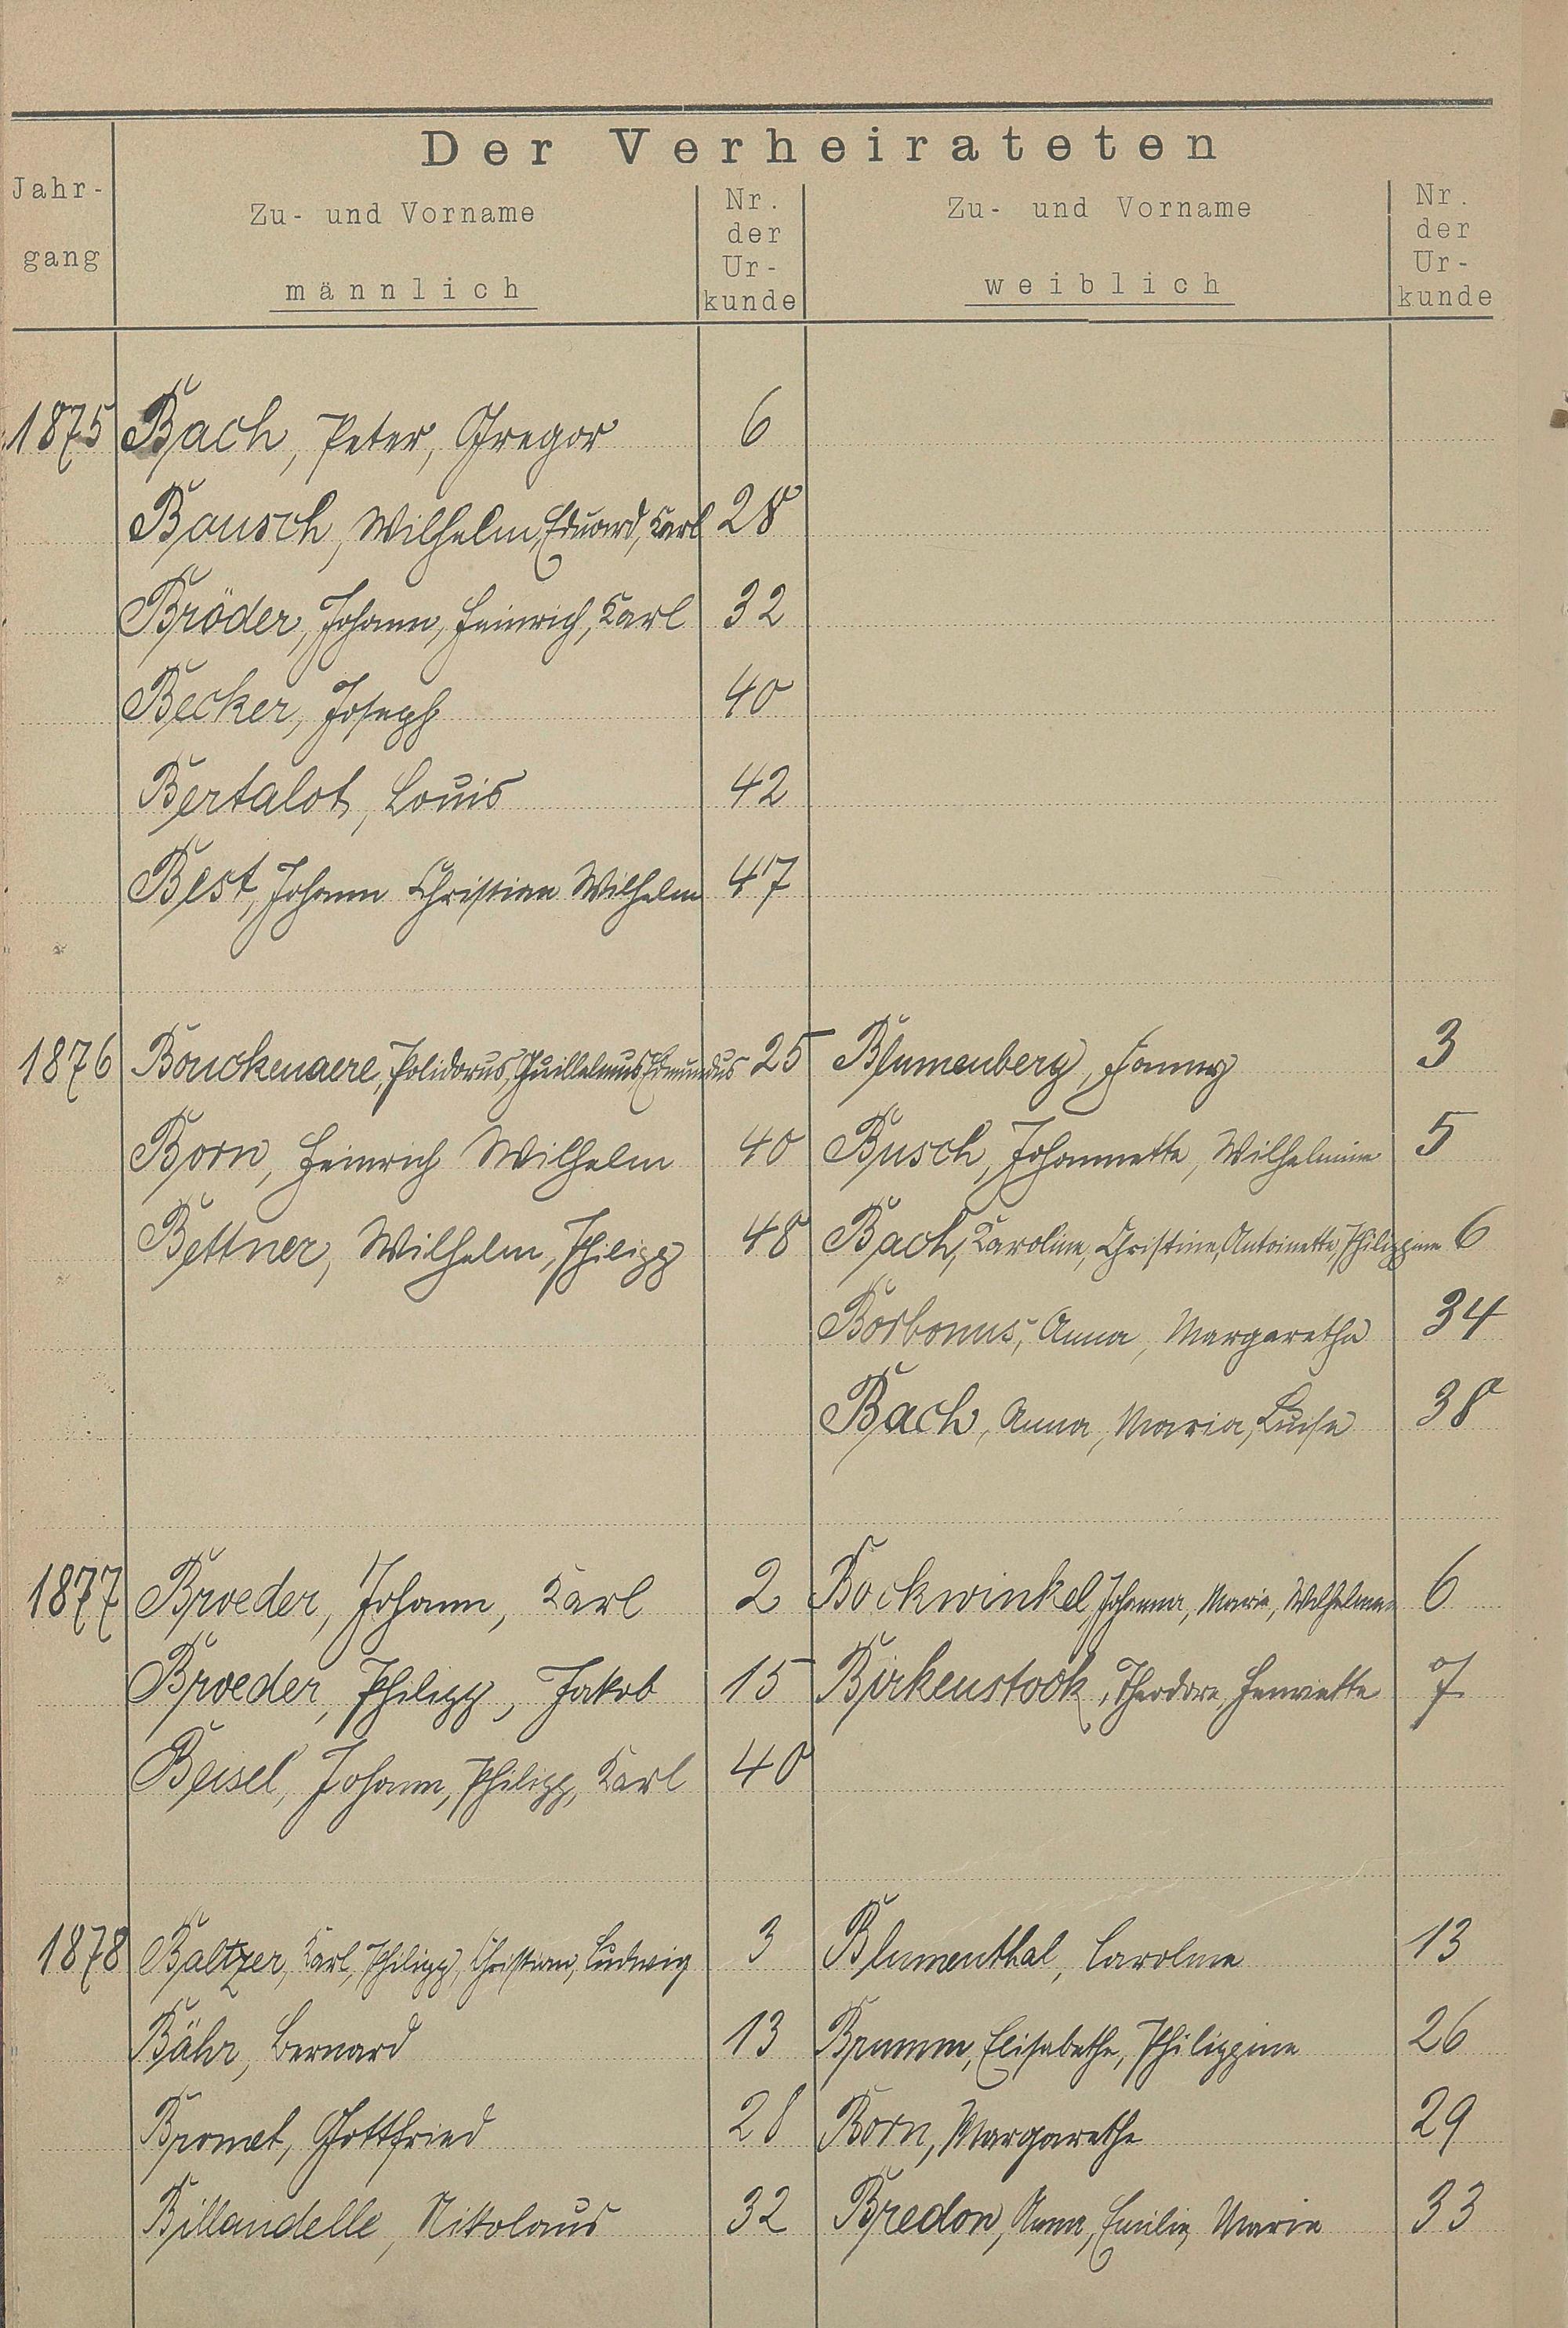 Der Verheirateten
Jahr-
gang
Zu- und Vorname
männlich
Nr.
der
Ur-
kunde
Zu- und Vorname
weiblich
Nr.
der
Ur-
kunde
1875 Bach, Peter, Gregor 6
Bausch, Wilhelm, Eduard, Karl 28
Bröder, Johann, Heinrich, Karl 32
Becker, Joseph 40
Bertalot, Louis 42
Best, Johann Christian Wilhelm 47
1876 Bouckenaere, Polidorus, Guillelmus Edmundus 25 Blumenberg, Fanny 3
Born, Heinrich Wilhelm 40 Busch, Johannette, Wilhelmine 5
Bettner, Wilhelm, Philipp 48 Bach, Karoline, Christine, Antoinette, Philippine 6
Borbonus, Anna, Margaretha 34
Bach, Anna, Maria, Luise 38
1877 Broeder, Johann, Karl 2 Bockwinkel, Johanna, Maria, Wilhelmine 6
Broeder, Philipp, Jakob 15 Birkenstock, Theodore, Henriette 7
Beisel, Johann, Philipp, Karl 40
1878 Baltzer, Karl, Philipp, Christian, Ludwig 3 Blumenthal, Caroline 13
Bähr, Bernard 13 Brumm, Elisabethe, Philippine 26
Bromet, Gottfried 28 Born, Margarethe 29
Billaudelle, Nikolaus 32 Bredon, Anna, Emilie, Marie 33